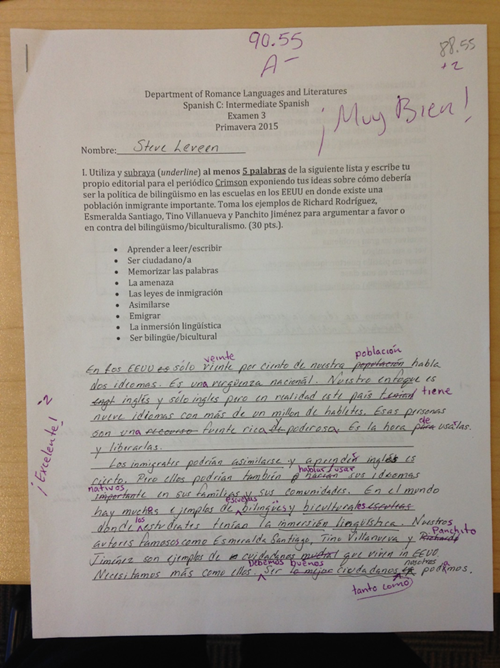 90.55
A-
88.55
+2
Department of Romance Languages and Literatures
Spanish C: Intermediate Spanish
Examen 3
Primavera 2015
¡Muy Bien!
Nombre: Steve Leveen
I. Utiliza y subraya (underline) al menos 5 palabras de la siguiente lista y escribe tu
propio editorial para el periódico Crimson exponiendo tus ideas sobre cómo debería
ser la política de bilingüismo en las escuelas en los EEUU en donde existe una
población inmigrante importante. Toma los ejemplos de Richard Rodríguez,
Esmeralda Santiago, Tino Villanueva y Panchito Jiménez para argumentar a favor o
en contra del bilingüismo/biculturalismo. (30 pts.).
• Aprender a leer/escribir
• Ser ciudadano/a
• Memorizar las palabras
• La amenaza
• Las leyes de inmigración
• Asimilarse
• Emigrar
• La inmersión lingüística
• Ser bilingüe/bicultural
veinte población
En los EEUU sólo viente por ciento de nuestra habla
dos idiomas. Es una vergüenza nacional. Nuestro enfoque es
inglés y sólo inglés pero en realidad este país tiene
nueve idiomas con más de un millon de habletes. Esas personas
son una fuente rica poderosa. Es la hora de usarlas
y liberarlas.
Los inmigrates podrían asimilarse y aprender inglés es
cierto. Pero ellos podrían también hablar/usar sus idiomas
nativos en sus familias y sus comunidades. En el mundo
hay muchos ejemplos de escuelas bilingües y biculturales
donde los estudiates tenían la inmersión lingüística. Nuestros
autores famosos como Esmeralda Santiago, Tino Villanueva y Panchito
Jiménez son ejemplos de ciudadanos que viven in EEUU.
Necesitamos más como ellos. Debemos Ser buenos ciudadanos nosotros podemos.
tanto como
¡Excelente!
-2